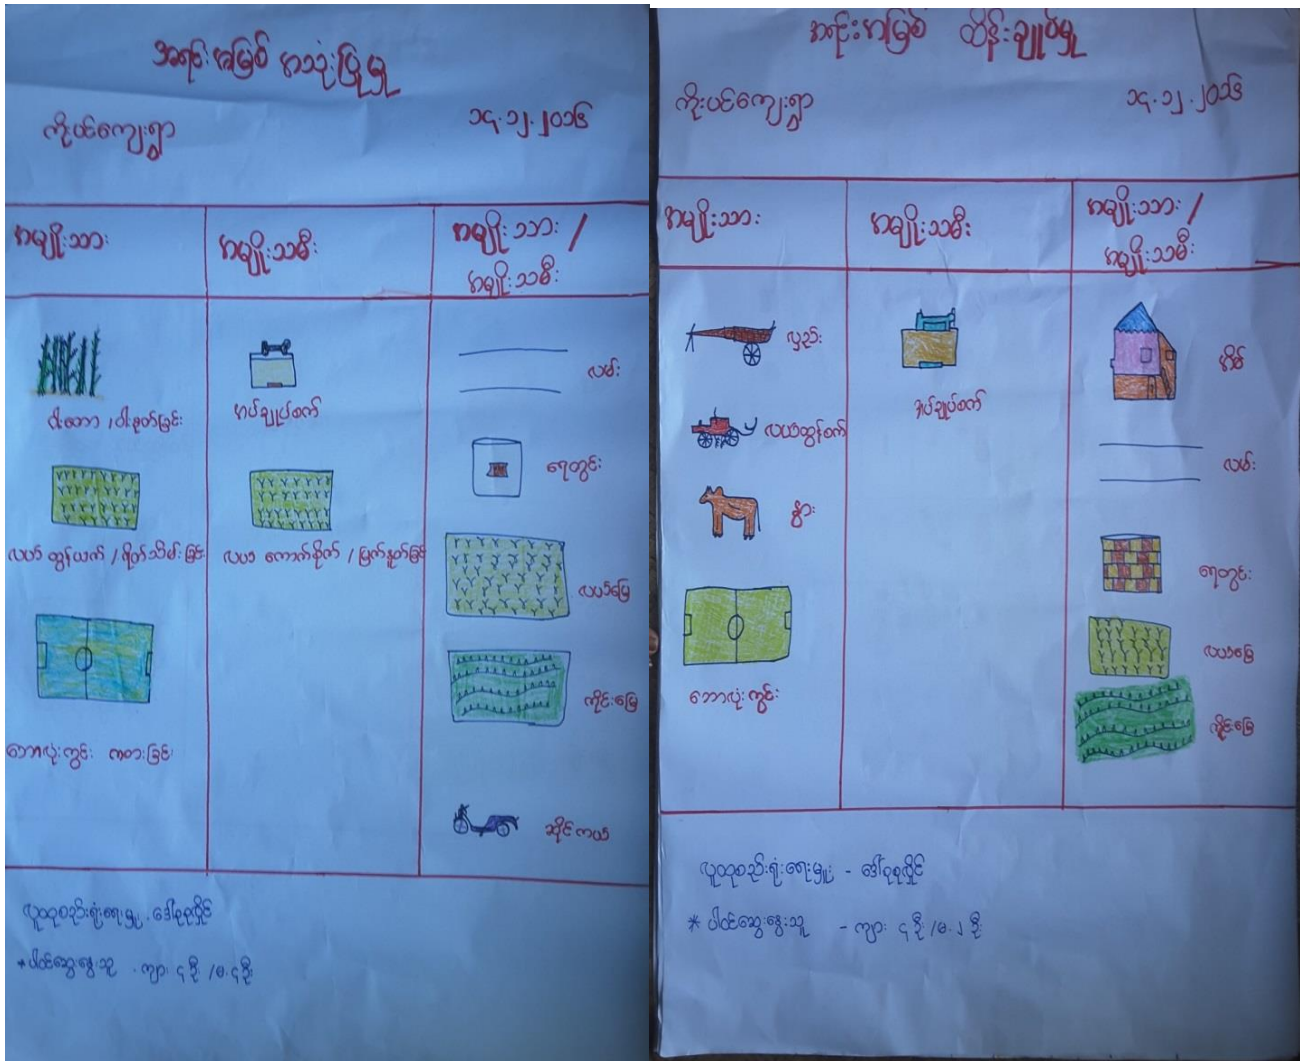 အရင်းအမြစ် အသုံးပြုမှု
ကိုးပင်ကျေးရွာ
၁၄.၁၂.၂၀၁၆
အမျိုးသား
အမျိုးသမီး
အမျိုးသား /
အမျိုးသမီး
ဝါးတော / ဝါးခုတ်ခြင်း
အပ်ချုပ်စက်
လမ်း
ရေတွင်း
လယ် ထွန်ယက် / ရိတ်သိမ်းခြင်း
လယ် ကောက်စိုက် / မြက်နုတ်ခြင်း
လယ်မြေ
ကိုင်းမြေ
ဘောလုံးကွင်း ကစားခြင်း
ဆိုင်ကယ်
လူထုစည်းရုံးရေးမှူး
* ပါဝင်ဆွေးနွေးသူ - ကျား ၄ ဦး / မ ၄ ဦး
အရင်းအမြစ် ထိန်းချုပ်မှု
ကိုးပင်ကျေးရွာ
၁၄.၁၂.၂၀၁၆
အမျိုးသား
အမျိုးသမီး
အမျိုးသား /
အမျိုးသမီး
လှည်း
အပ်ချုပ်စက်
အိမ်
လယ်ထွန်စက်
လမ်း
နွား
ရေတွင်း
ဘောလုံးကွင်း
လယ်မြေ
ကိုင်းမြေ
လူထုစည်းရုံးရေးမှူး -
* ပါဝင်ဆွေးနွေးသူ - ကျား ၄ ဦး / မ ၂ ဦး